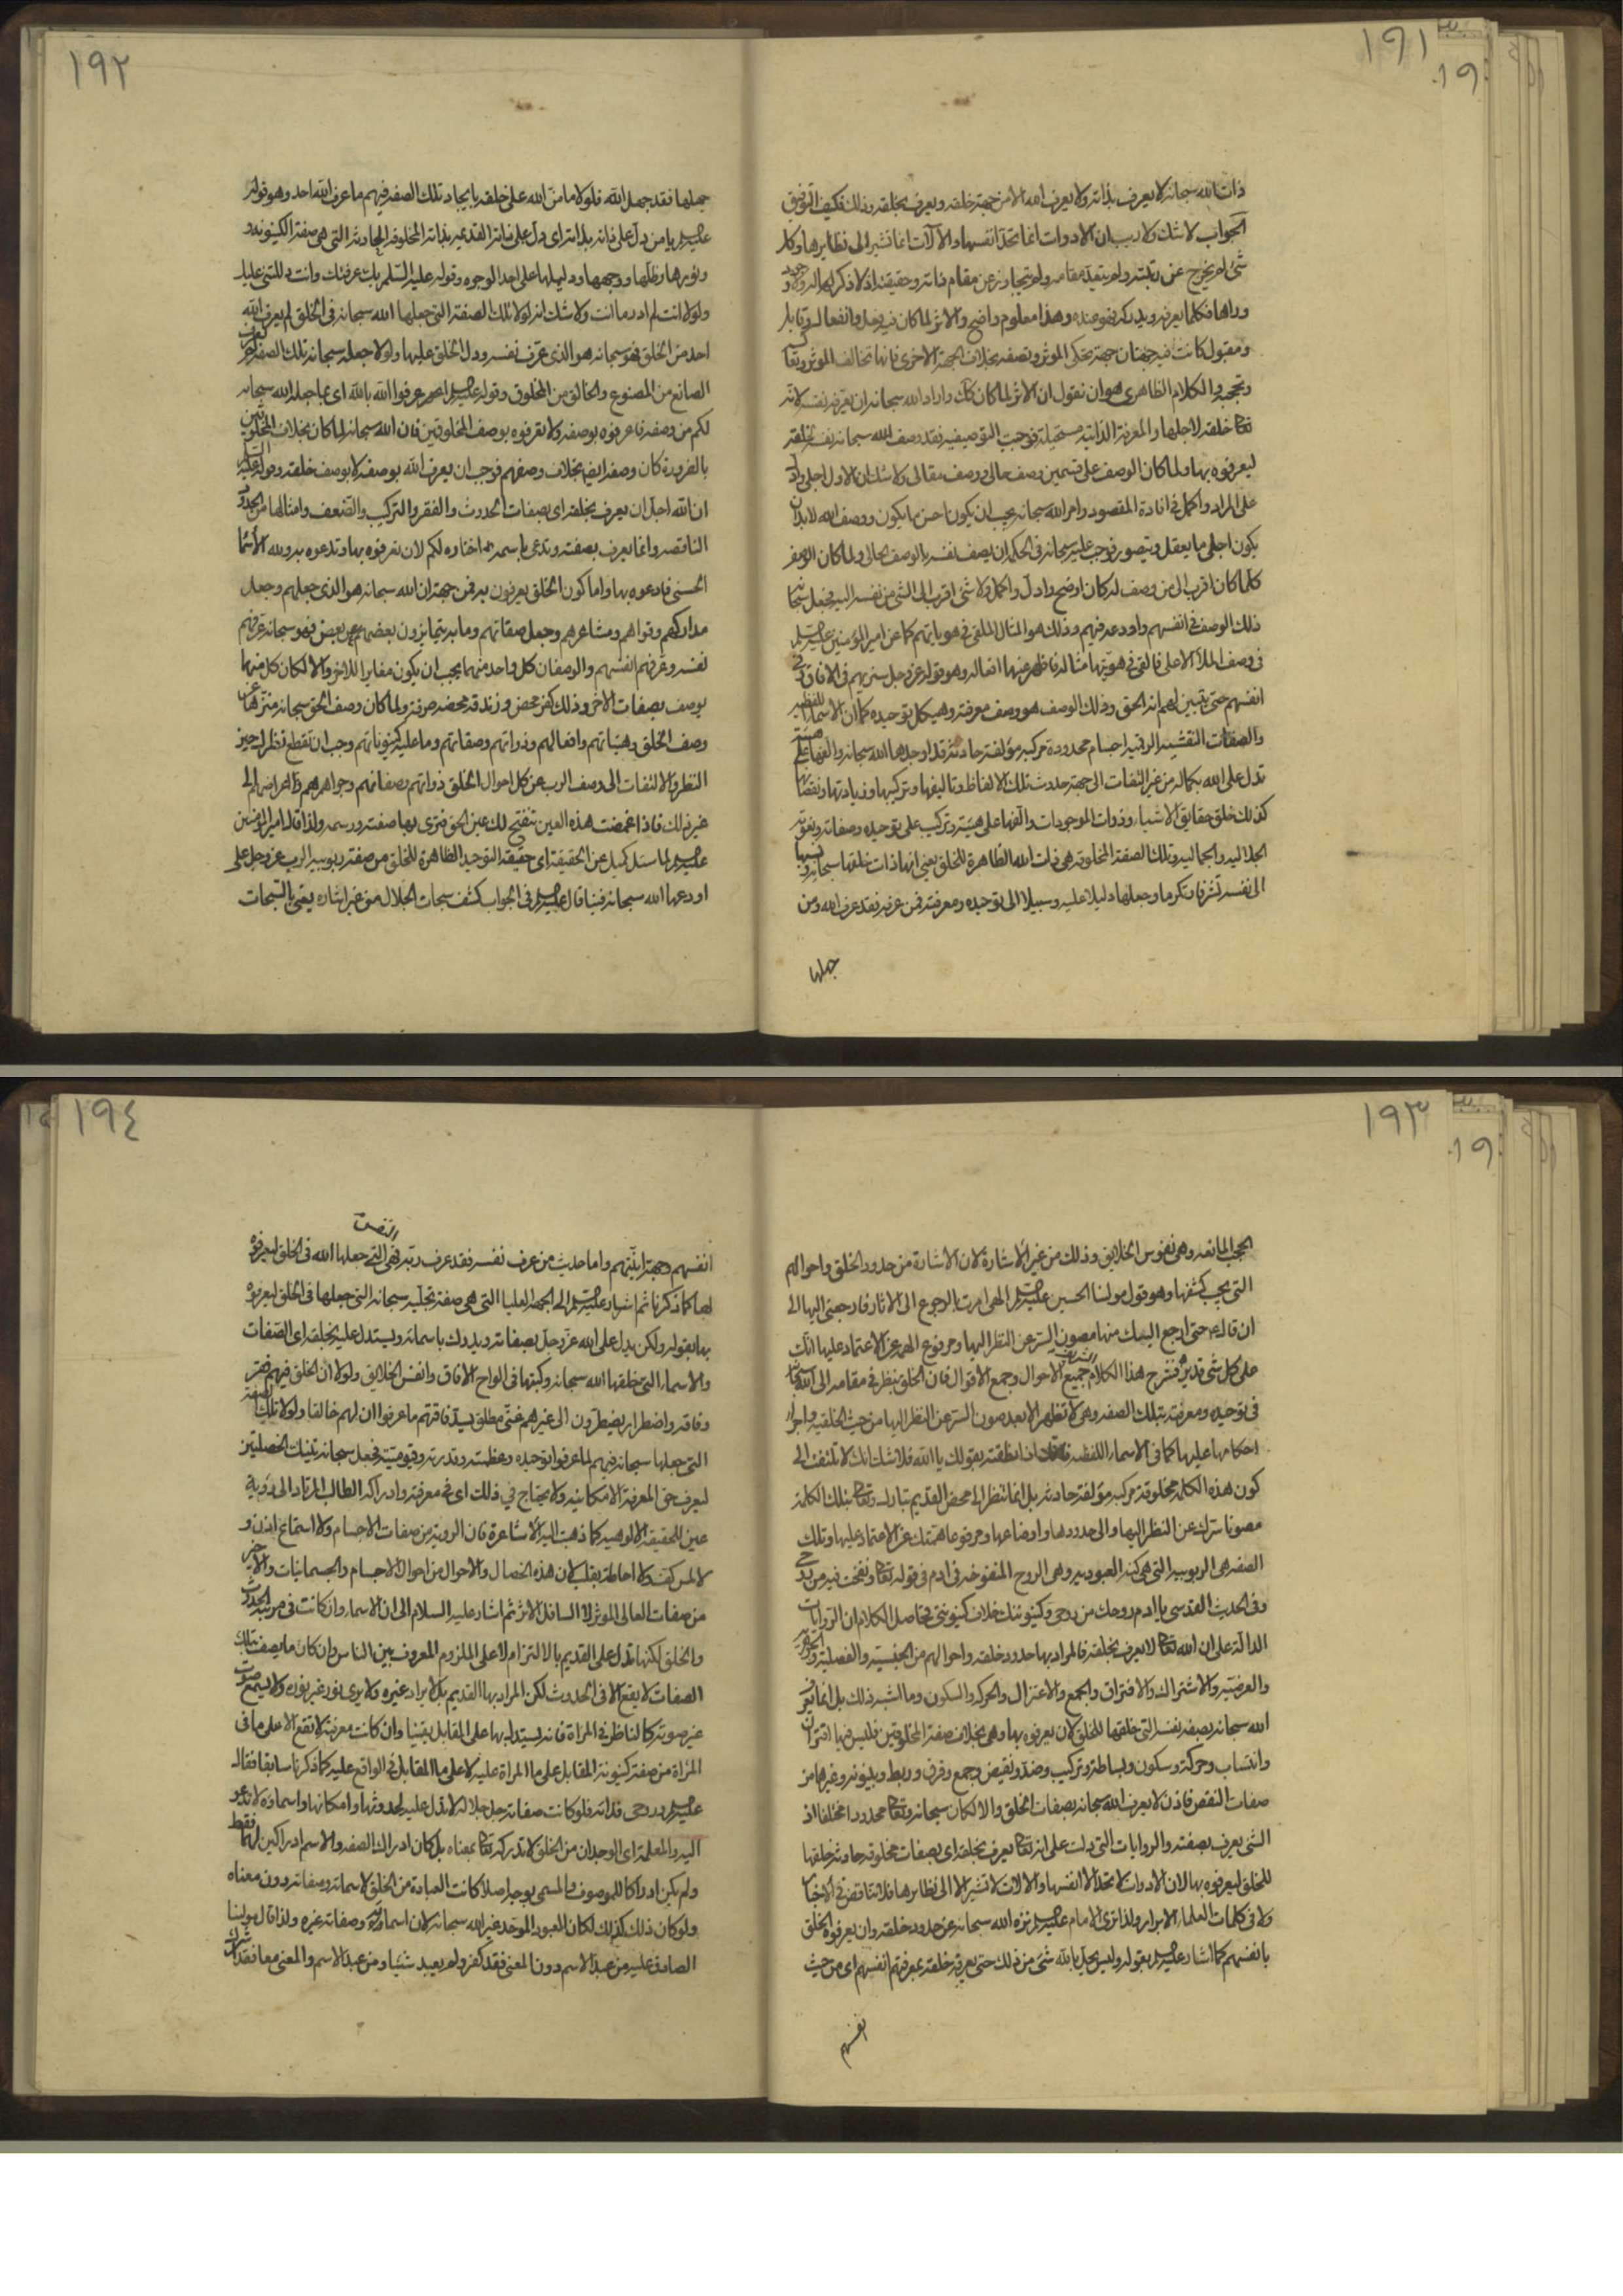 ١٩١
١٩
ذات الله سبحانه لا يعرف بذاته ولا يعرف الله الا من جهة خلقه ويعرف بخلقه وذلك فكيف التوفيق
الجواب لا شك ولا ريب ان الادوات انما تحد انفسها والآلات انما تشير الى نظايرها وكل
شئ لم يخرج عن رتبته ولم يتعد مقامه ولم يتجاوز عن مقام ذاته وحقيقته اذ لا ذكر له
وراها فكلما يعرفه ويدركه فهو عنده وهذا معلوم واضح والاثر لما كان فيه فعل وانفعال وقابل
ومقبول كانت فيه جهتان جهة يحكى الموثر وتصفه بخلاف الجهة الاخرى فانها تخالف الموثر
الكلام الظاهرى هو ان نقول ان الاثر لما كان كك واراد الله سبحانه ان يعرفه نفسه لانه
تعالى خلقه لاجلها والمعرفة الذاتية مستحيلة فوجب التوصيف فقد وصف الله سبحانه نفسه لخلقه
ليعرفوه بها ولما كان الوصف على قسمين وصف حالى ووصف مقالى ولا شك ان الاول اجلى وادل
على المراد واكمل فى افادة المقصود وامر الله سبحانه يجب ان يكون احسن ما يكون ووصف الله لابد ان
يكون اجلى ما يعقل ويتصور فوجب عليه سبحانه فى الحكمة ان يصف نفسه بالوصف الحالى ولما كان الوصف
كلما كان اقرب الى من وصف له كان اوضح وادل واكمل ولا شئ اقرب الى الشئ من نفسه اليه فجعل سبحانه
ذلك الوصف فى انفسهم واودعه فيهم وذلك هو المثال الملقى فى هوياتهم كما عن امير المؤمنين عليه السلم
فى وصف الملأ الاعلى فالقى فى هويتها مثاله فاظهر عنها افعاله وهو قوله عز وجل سنريهم فى الافاق وفى
انفسهم حتى يتبين لهم انه الحق وذلك الوصف هو وصف معرفته وهيكل توحيده كما ان الاسماء اللفظية
والصفات النقشية الرقمية اجسام محدودة مركبة مؤلفة حادثة قد اوجدها الله سبحانه والفها على هيئة
تدل على الله بكماله من غير التفات الى جهة حدوث تلك الالفاظ وتاليفها وتركيبها وزيادتها ونقصانها
كذلك خلق حقايق الاشياء وذوات الموجودات والفها على هيئة وتركيب على توحيده وصفاته ونعوته
الجلالية والجمالية وتلك الصفة المخلوقة هى ذات الله الظاهرة للخلق يعنى انها ذات خلقها سبحانه ونسبها
الى نفسه تشرفا وتكرما وجعلها دليلا عليه وسبيلا الى توحيده ومعرفته فمن عرفه فقد عرف الله ومن
جهلها
١٩٢
جهلها فقد جهل الله فلولا ما من الله على خلقه بايجاد تلك الصفة فيهم ما عرف الله احد وهو قوله
عليه السلم يا من دل على ذاته بذاته اى دل على ذاته القديمة بذاته المخلوقة الحادثة التى هى صفة الكينونة
ونورها وظلها ووجهها ودليلها على احد الوجوه وقوله عليه السلم بك عرفتك وانت دللتنى عليك
ولولا انت لم ادر ما انت ولا شك انه لولا تلك الصفة التى جعلها الله سبحانه فى الخلق لم يعرف الله
احد من الخلق فهو سبحانه هو الذى عرف نفسه ودل الخلق عليها ولولا جعله سبحانه تلك الصفة لم يعرف
الصانع من المصنوع والخالق من المخلوق وقوله عليه السلم اعرفوا الله بالله اى بما جعله الله سبحانه
لكم من وصفه فاعرفوه بوصفه ولا تعرفوه بوصف المخلوقين فان الله سبحانه لما كان بخلاف المخلوقين
بالضرورة كان وصفه ايضا بخلاف وصفهم فوجب ان يعرف الله بوصفه لا بوصف خلقه وقوله عليه السلم
ان الله اجل ان يعرف بخلقه اى بصفات الحدوث والفقر والتركيب والضعف وامثالها من الحدود
الناقصة وانما يعرف بصفته وتدعى باسمه مما اختاره لكم لان تعرفوه بها وتدعوه به ولله الاسماء
الحسنى فادعوه بها واما كون الخلق يعرفون به فمن جهة ان الله سبحانه هو الذى جعلهم وجعل
مداركهم وقواهم ومشاعرهم وجعل صفاتهم وما به يتمايزون بعضهم عن بعض فهو سبحانه عرفهم
نفسه وعرفهم انفسهم والوصفان كل واحد منهما يجب ان يكون مغايرا للاخر والا لكان كل منهما
يوصف بصفات الاخر وذلك كفر محض وزندقة محضة صرفة ولما كان وصف الحق سبحانه منزها عن
وصف الخلق وهيئاتهم وافعالهم وذواتهم وصفاتهم وما عليه كينوناتهم وجب ان تقطع نظرك حين
النظر والالتفات الى وصف الرب عن كل احوال الخلق ذواتهم صفاتهم وجواهرهم واعراضهم الى
غير ذلك فاذا غمضت هذه العين تنفتح لك عين الحق فترى بها صفته ورسمه ولذا قال امير المؤمنين
عليه السلم لما سئل كميل عن الحقيقة اى حقيقة التوحيد الظاهرة للخلق من صفة ربوبية الرب عز وجل على
اودعها الله سبحانه فينا قال عليه السلم فى الجواب كشف سبحات الجلال من غير اشارة يعنى بالسبحات
١٩٣
١٩
الحجب المانعة وهى نفوس الخلايق وذلك من غير الاشارة لان الاشارة من حدود الخلق واحوالهم
التى يجب كشفها وهو قول مولنا الحسين عليه السلم الهى امرت بالرجوع الى الاثار فارجعنى اليها الى
ان قال حتى ارجع اليك منها مصون السر عن النظر اليها ومرفوع الهمة عن الاعتماد عليها انك
على كل شئ قدير فشرح هذا الكلام الشريف جميع الاحوال وجمع الاقوال فان الخلق ينظر فى مقامه الى الله سبحانه
فى توحيده ومعرفته بتلك الصفة وهى لا تظهر الا بعد صون السر عن النظر اليها من حيث الخلقية واجراء
احكامها عليها كما فى الاسماء اللفظية فانك اذا نطقت بقولك يا الله فلا شك انك لا تلتفت الى
كون هذه الكلمة مخلوقة مركبة مؤلفة حادثة بل انما تنظر الى محض القديم تبارك وتعالى بتلك الكلمة
مصونا سرك عن النظر اليها والى حدودها واوضاعها ومرفوعا همتك عن الاعتماد عليها وتلك
الصفة هى الربوبية التى هى كنه العبودية وهى الروح المنفوخة فى ادم فى قوله تعالى ونفخت فيه من روحى
وفى الحديث القدسى يا ادم روحك من روحى وكينونتك خلاف كينونتى فحاصل الكلام ان الروايات
الدالة على ان الله تعالى لا يعرف بخلقه فالمراد بها حدود خلقه واحوالهم من الجنسية والفصلية والجوهرية
والعرضية والاشتراك والافتراق والجمع والاعتزال والحركة والسكون وما اشبه ذلك بل انما يعرف
الله سبحانه بصفة نفسه التى خلقها للخلق لان يعرفوه بها وهى بخلاف صفة المخلوقين فليس فيها اقتران
وانتساب وحركة وسكون وبساطة وتركيب وضد ونقيض وجمع وفرق وربط وبينونة وغيرها من
صفات النقص فاذن لا يعرف الله سبحانه بصفات الخلق والا لكان سبحانه وتعالى محدودا مختلفا اذ
الشئ يعرف بصفته والروايات التى دلت على انه تعالى يعرف بخلقه اى بصفات مخلوقة حادثة خلقها
للخلق ليعرفوه بها لان الادوات لا تحد الا انفسها والالات لا تشير الا الى نظايرها فلا تناقض فى الاخبار
ولا فى كلمات العلماء الابرار ولذا ترى الامام عليه السلم نزه الله سبحانه عن حدود خلقه وان يعرفوه الخلق
بانفسهم كما اشار عليه السلم بقوله وليس يحل بالله شئ من ذلك حتى يعرف خلقه بمعرفتهم انفسهم اى من حيث
انفسهم
١٩٤
انفسهم وجهة انيتهم واما حديث من عرف نفسه فقد عرف ربه فهى النفس التى جعلها الله فى الخلق ليعرفوه
بها كما ذكرنا ثم اشار عليه السلم الى الجهة العليا التى هى صفة تجليه سبحانه التى جعلها فى الخلق ليعرفوه
بها بقوله ولكن يدل على الله عز وجل بصفاته ويدرك باسمائه ويستدل عليه بخلقه اى الصفات
والاسماء التى خلقها الله سبحانه وكتبها فى الواح الافاق وانفس الخلايق ولولا ان الخلق فيهم فقر
وفاقة واضطرار يضطرون الى غيرهم غنى مطلق يسد فاقتهم ما عرفوا ان لهم خالقا ولولا تلك الصفة
التى جعلها سبحانه فيهم لما عرفوا توحيده وعظمته وقدرته وقيوميته فجعل سبحانه تينك الخصلتين
ليعرف حق المعرفة الامكانية ولا يحتاج فى ذلك اى فى معرفته وادراكه الطالب المرتاد الى رؤية
عين للحقيقة الالوهية كما ذهبت اليه الاشاعرة فان الرؤية من صفات الاجسام ولا استماع اذن و
لا لمس كف ولا احاطة بقلب لان هذه الخصال والاحوال من احوال الاجسام والجسمانيات
من صفات العالى الموثر لا السافل الاثر ثم اشار عليه السلام الى ان الاسماء وان كانت فى مرتبة الحدوث
والخلق لكنها تدل على القديم بالالتزام لا على الملزوم المعروف بين الناس وان كان ما يصف بتلك
الصفات لا يقع الا فى الحدوث لكن المراد بها القديم بل لا يراد غيره ولا يرى نور غير نوره ولا يسمع صوت
غير صوته كالناظر فى المراة فانه يستدل بها على المقابل يقينا وان كانت معرفته لا تقع الا على ما فى
المراة من صفة كينونة المقابل على ما المراة عليه لا على ما المقابل فى الواقع عليه كما ذكرنا سابقا فقال
عليه السلم روحى فداه فلو كانت صفاته جل جلاله لا تدل عليه لحدوثها وامكانها واسماؤه لا تدعو
اليه والمعلمة اى الوجدان من الخلق لا تدركه تعالى بمعناه بل كان ادراك الصفة والاسم ادراكين لهما فقط
ولم يكن ادراكا للموصوف والمسمى بوجه اصلا كانت العبادة من الخلق لاسمائه وصفاته دون معناه
ولو كان ذلك كذلك لكان المعبود الموحد غير الله سبحانه لان اسمائه وصفاته غيره ولذا قال مولينا
الصادق عليه من عبد الاسم دون المعنى فقد كفر ولم يعبد شيئا ومن عبد الاسم والمعنى معا فقد اشرك